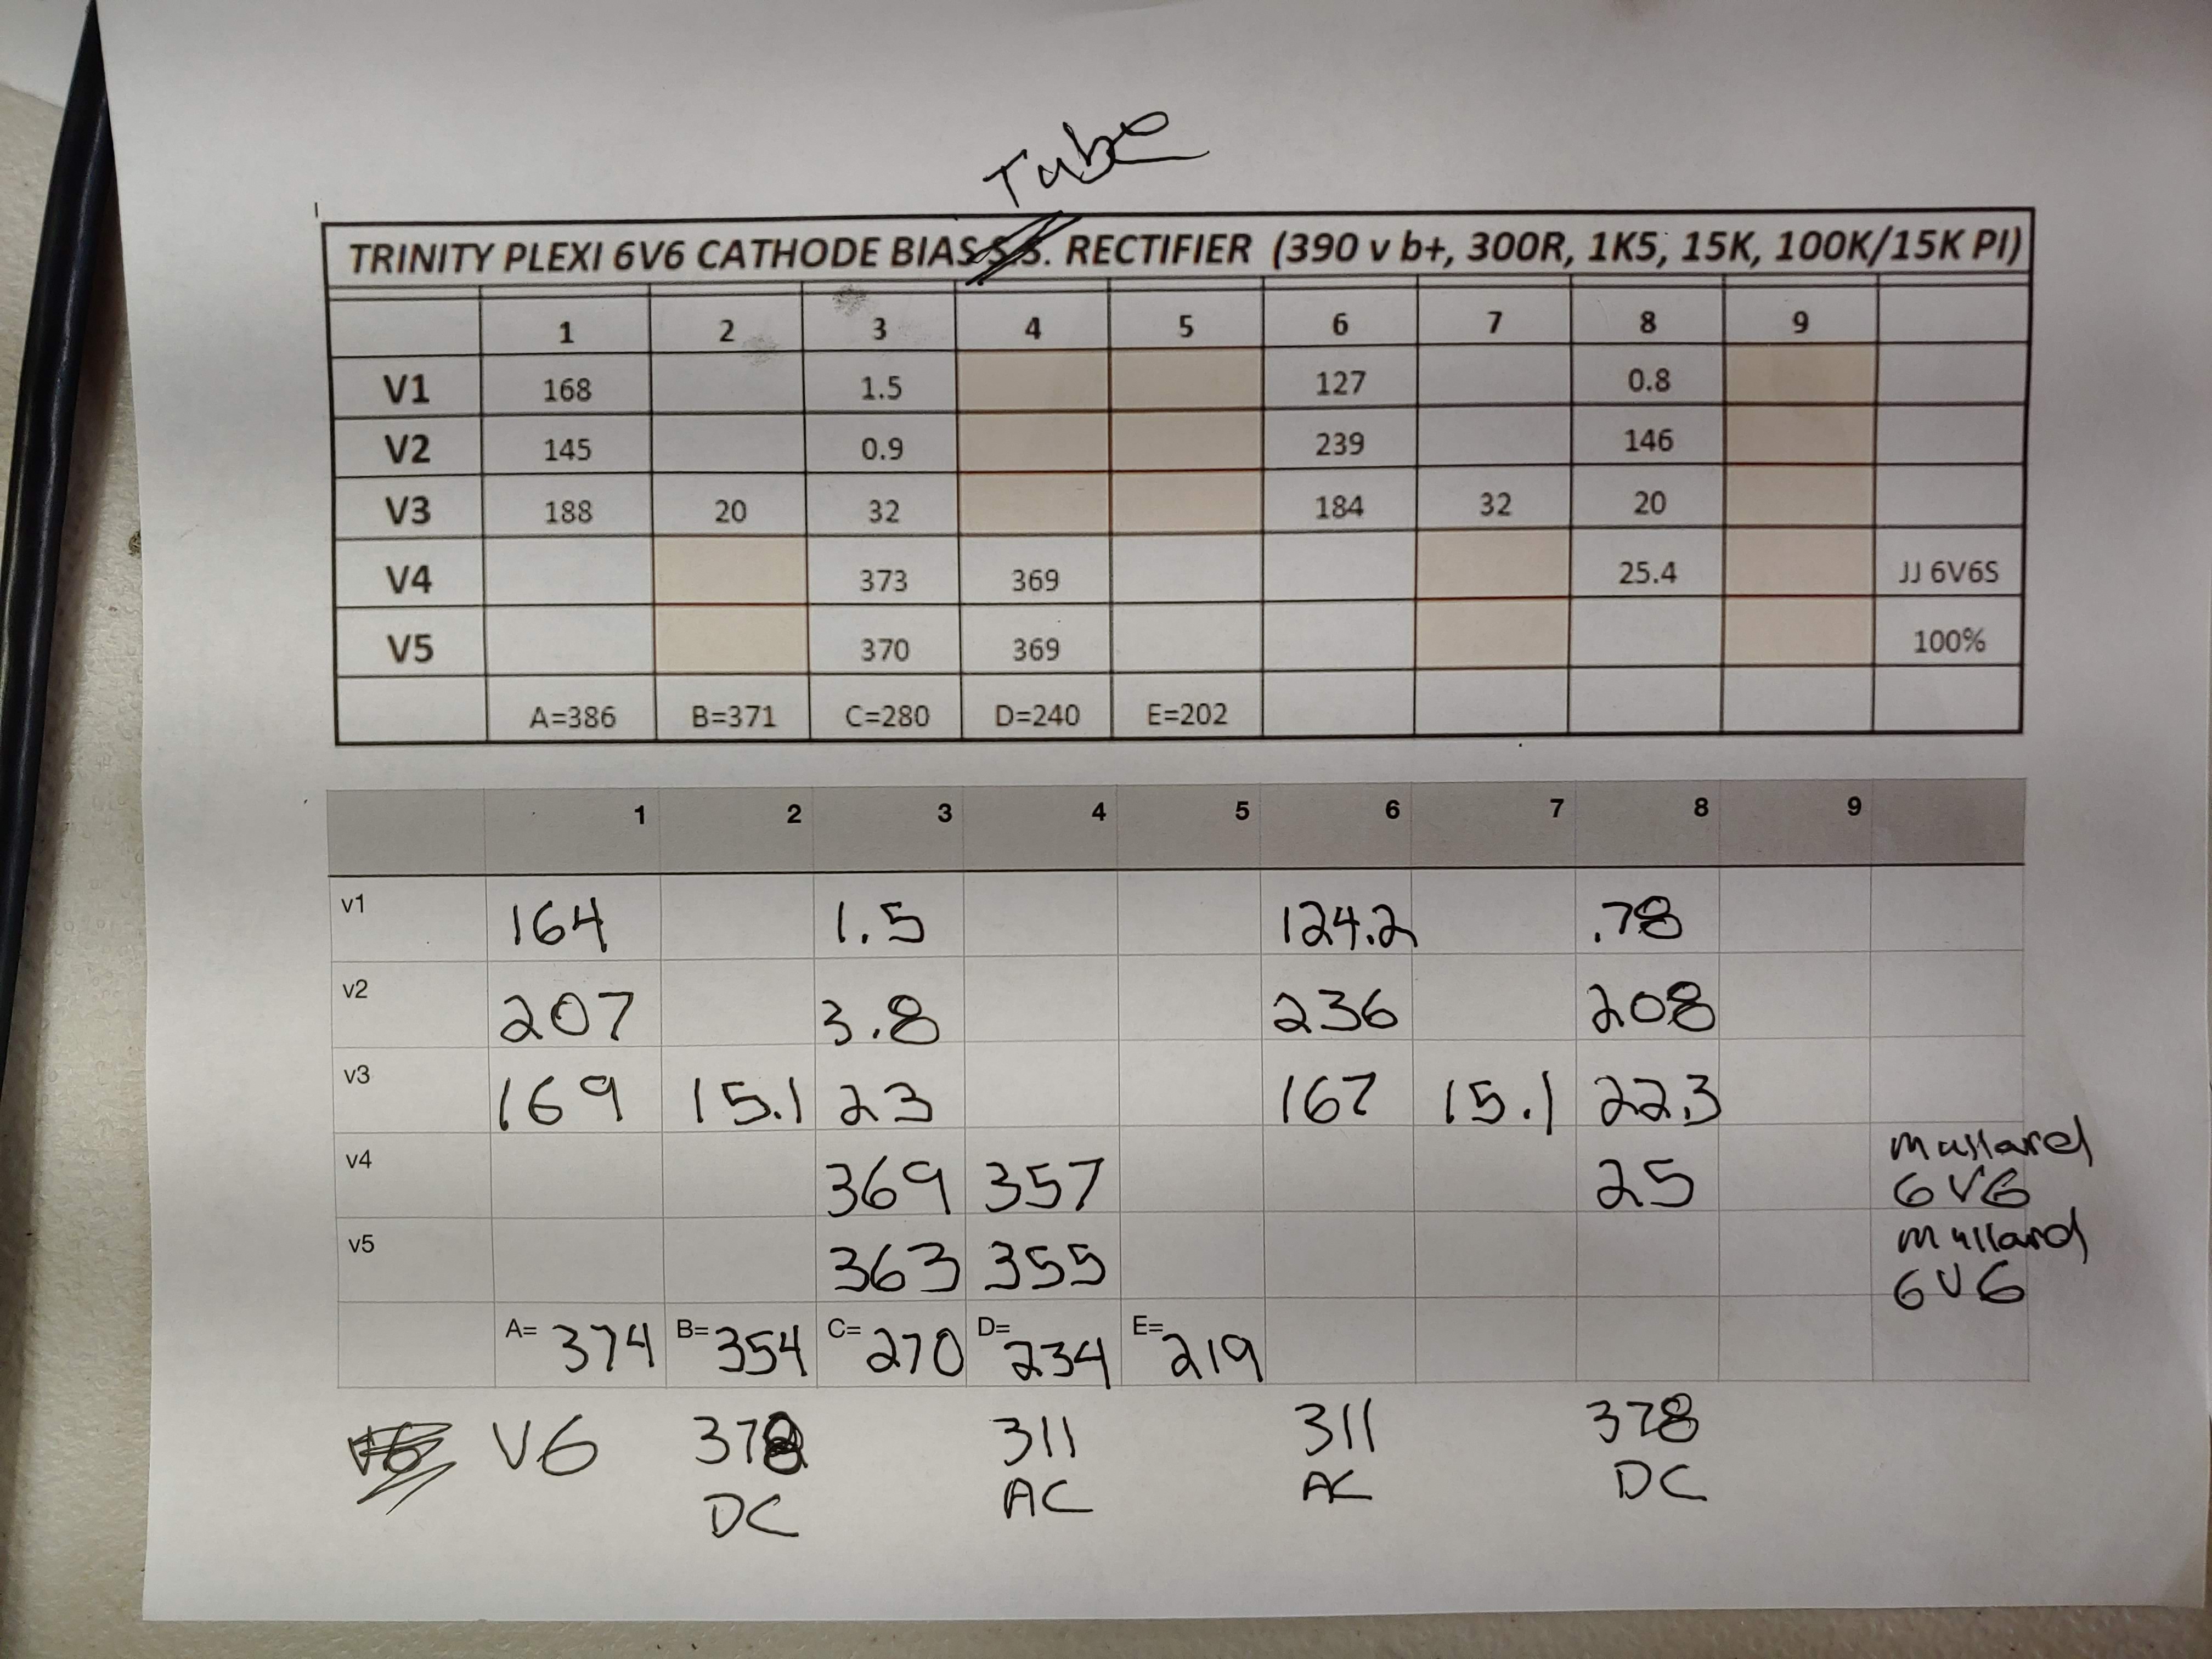 Tube
TRINITY PLEXI 6V6 CATHODE BIAS S.S. RECTIFIER (390 v b+, 300R, 1K5, 15K, 100K/15K PI)
1 2 3 4 5 6 7 8 9
V1 168 1.5 127 0.8
V2 145 0.9 239 146
V3 188 20 32 184 32 20
V4 373 369 25.4 JJ 6V6S
V5 370 369 100%
A=386 B=371 C=280 D=240 E=202
1 2 3 4 5 6 7 8 9
v1 164 1.5 124.2 .78
v2 207 3.8 236 208
v3 169 15.1 23 167 15.1 22.3
v4 369 357 25 Mullard 6V6
v5 363 355 Mullard 6V6
A= 374 B= 354 C= 270 D= 234 E= 219
V6 V6 378 311 311 378
DC AC AC DC